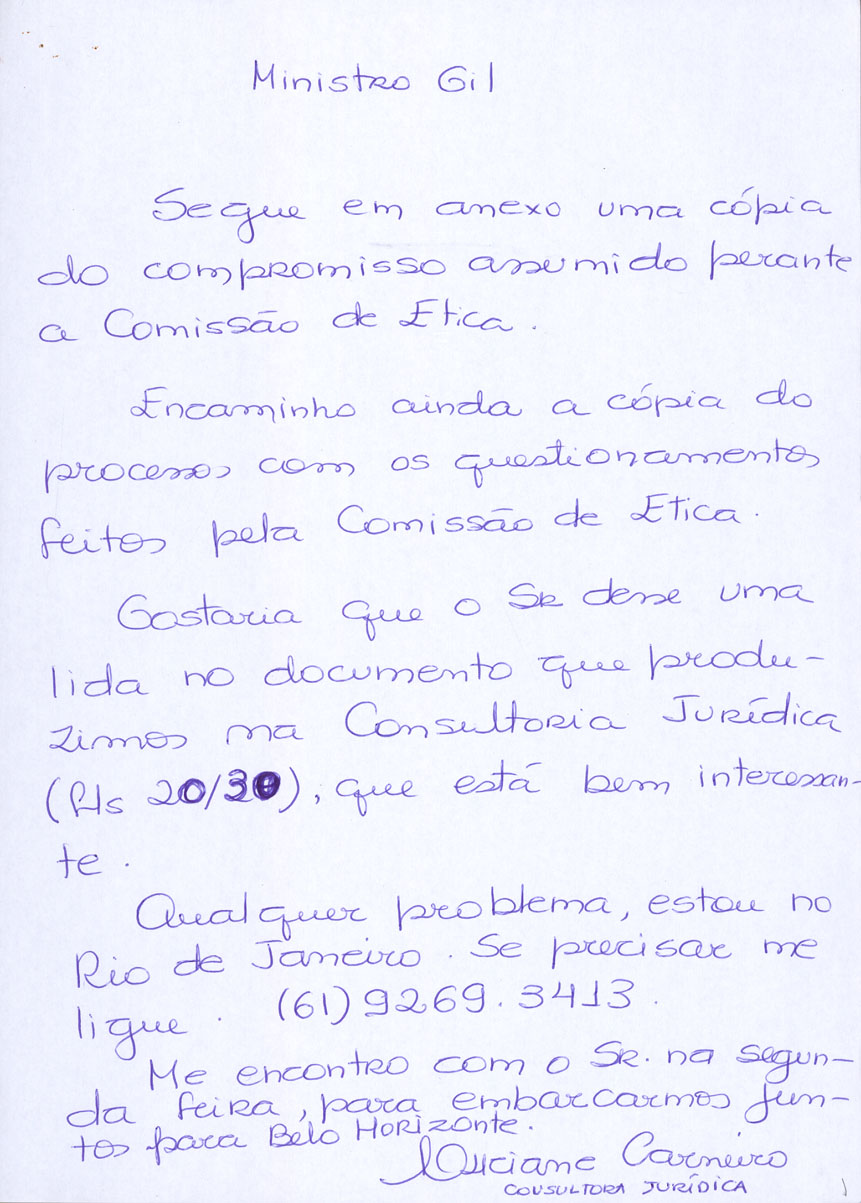 Ministro Gil
Segue em anexo uma cópia
do compromisso assumido perante
a Comissão de Etica.
Encaminho ainda a cópia do
processo, com os questionamentos
feitos pela Comissão de Etica.
Gostaria que o Sr desse uma
lida no documento que produ-
zimos na Consultoria Jurídica
(fls 20/30), que está bem interessan-
te.
Qualquer problema, estou no
Rio de Janeiro. Se precisar me
ligue. (61) 9269.3413.
Me encontro com o Sr. na segun-
da feira, para embarcarmos jun-
tos para Belo Horizonte.
Luciane Carneiro
CONSULTORA JURÍDICA